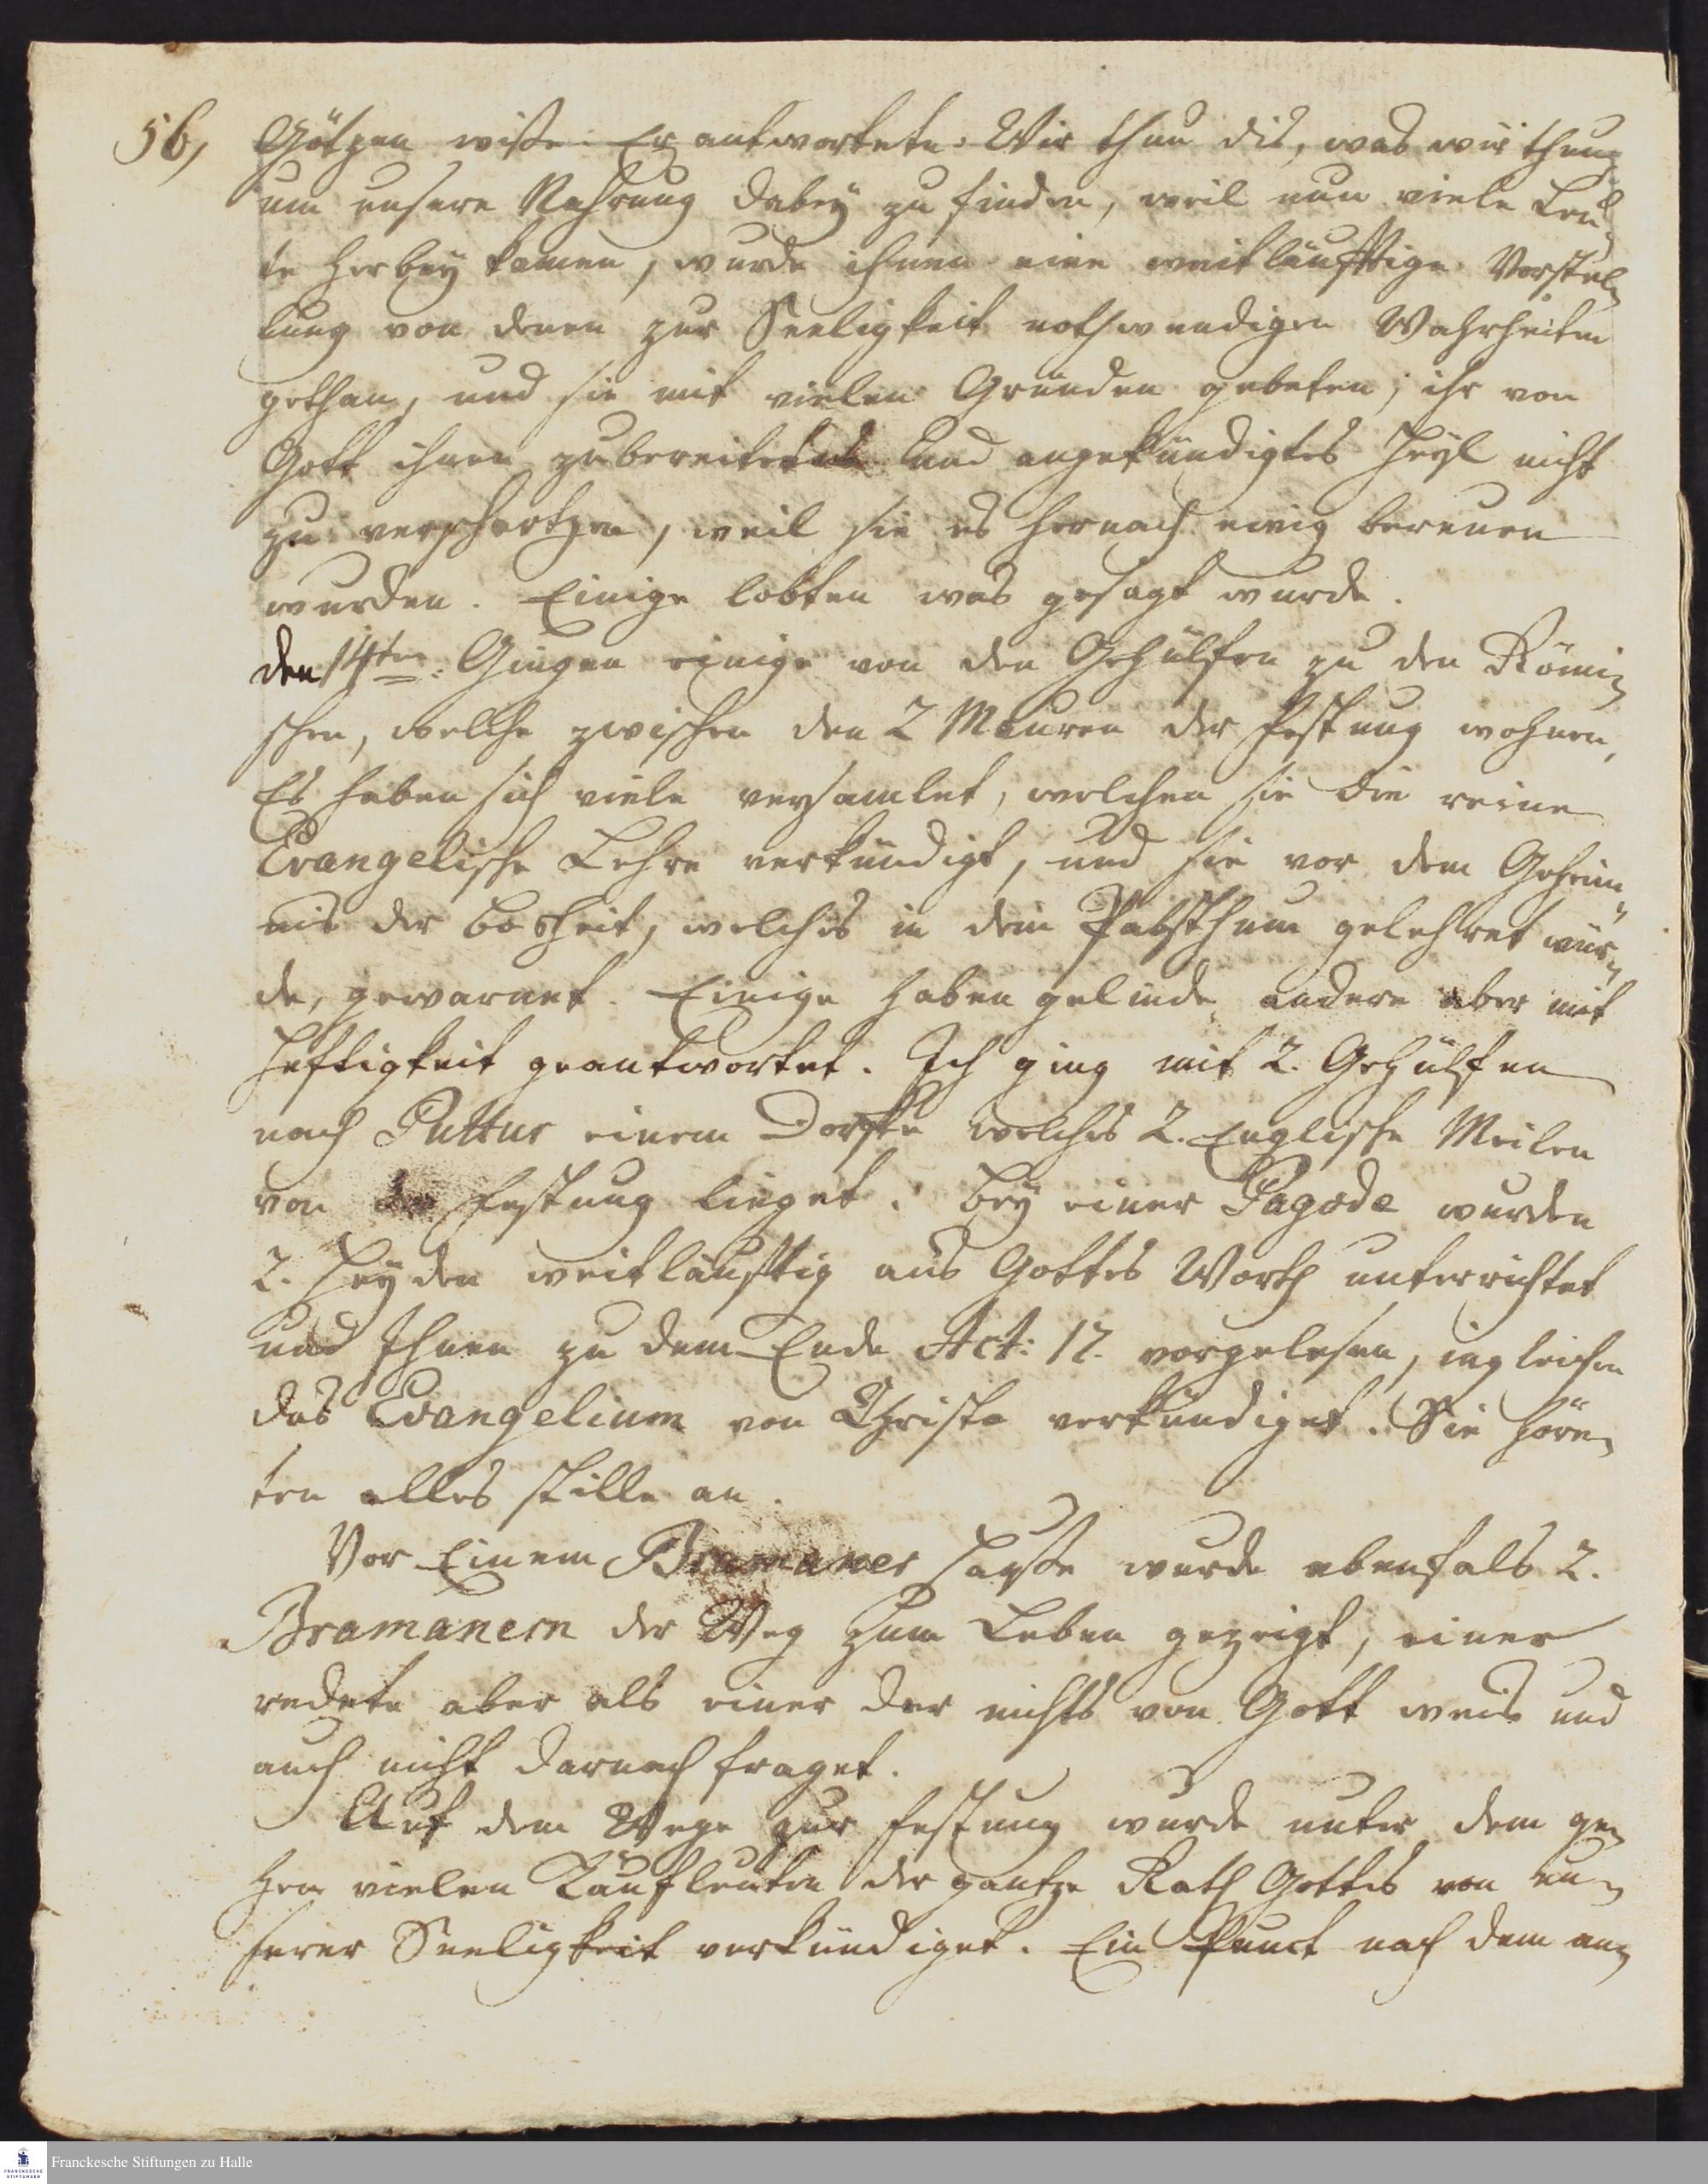 56,
Götzen wiße. Er antwortete: Wir thun dis, was wir thun,
um unsere Nahrung dabey zu finden, weil nun viele Leu-
te herbey kamen, wurde ihnen eine weitläufftige Vorstel-
lung von denen zur Seeligkeit nothwendigen Wahrheiten
gethan, und sie mit vielen Gründen gebeten, ihr von
Gott ihnen zubereitetes und angekündigtes Heyl nicht
zu verschertzen, weil sie es hernach ewig bereuen
wurden. Einige lobten was gesagt wurde.
den 14ten: Gingen einige von den Gehülfen zu den Römi-
schen, welche zwischen den 2 Mauren der Festung wohnen,
Es haben sich viele versamlet, welchen sie die reine
Evangelische Lehre verkündigt, und sie vor dem Geheim-
nis der Bosheit, welches in dem Pabsthum gelehret wür-
de, gewarnet. Einige haben gelinde, andere aber mit
Heftigkeit geantwortet. Ich ging mit 2. Gehülfen
nach Puttur einem Dorffe welches 2. Englische Meilen
von der Festung lieget. Bey einer Pagode wurden
2. Heyden weitläufftig aus Gottes Worth unterrichtet
und Ihnen zu dem Ende Act: 17. vorgelesen, ingleichen
das Evangelium von Christo verkündiget. Sie höre-
ten alles stille an.
Vor Einem Bramaner Hauße wurde ebenfals 2.
Bramanern der Weg zum Leben gezeigt, einer
redete aber als einer der nichts von Gott weis und
auch nicht darnach fraget.
Auf dem Wege zur Festung wurde unter dem ge-
hen vielen Kaufleuten der gantze Rath Gottes von un-
serer Seeligkeit verkündiget. Ein Punct nach dem an-
Franckesche Stiftungen zu Halle
FRANCKESCHE
STIFTUNGEN